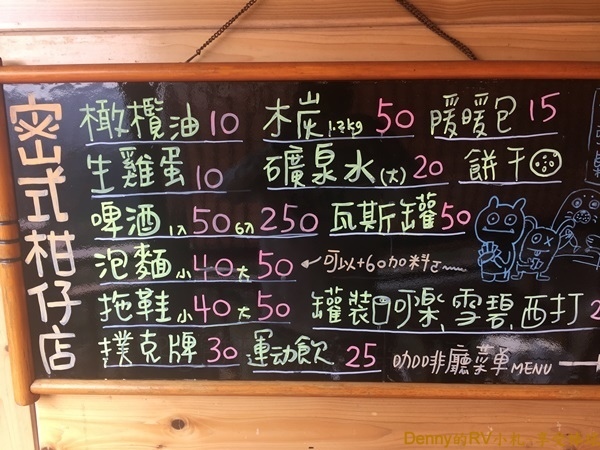 密式柑仔店
橄欖油10 木炭1.2kg 50 暖暖包15
生雞蛋10 礦泉水(大)20 餅干
啤酒1入50 6入250 瓦斯罐50
泡麵小40大50 ←可以+60加料ㄛ
拖鞋小40大50 罐裝可樂,雪碧,西打2
撲克牌30 運动飲25 咖啡廳菜單MENU→
Denny的RV小札